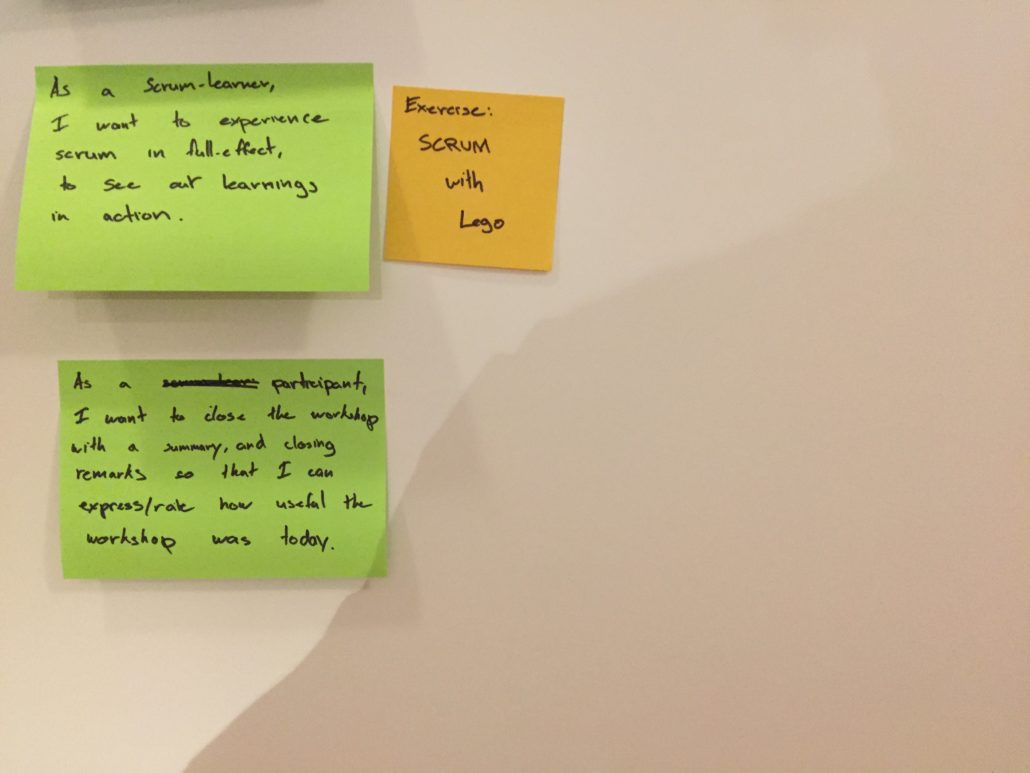 As a Scrum-learner,
I want to experience
scrum in full-effect,
to see our learnings
in action.
Exercise:
SCRUM
with
Lego
As a participant,
I want to close the workshop
with a summary, and closing
remarks so that I can
express/rate how useful the
workshop was today.